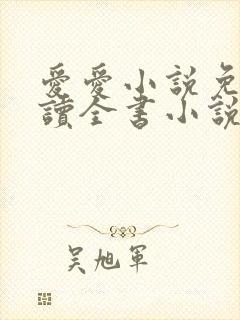 愛愛小說免
讀全書小說
吴旭軍